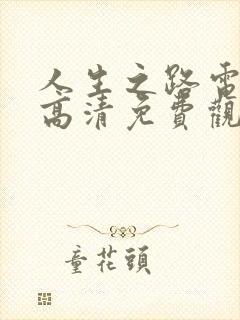 人生之路電
高清免費觀
童花頭